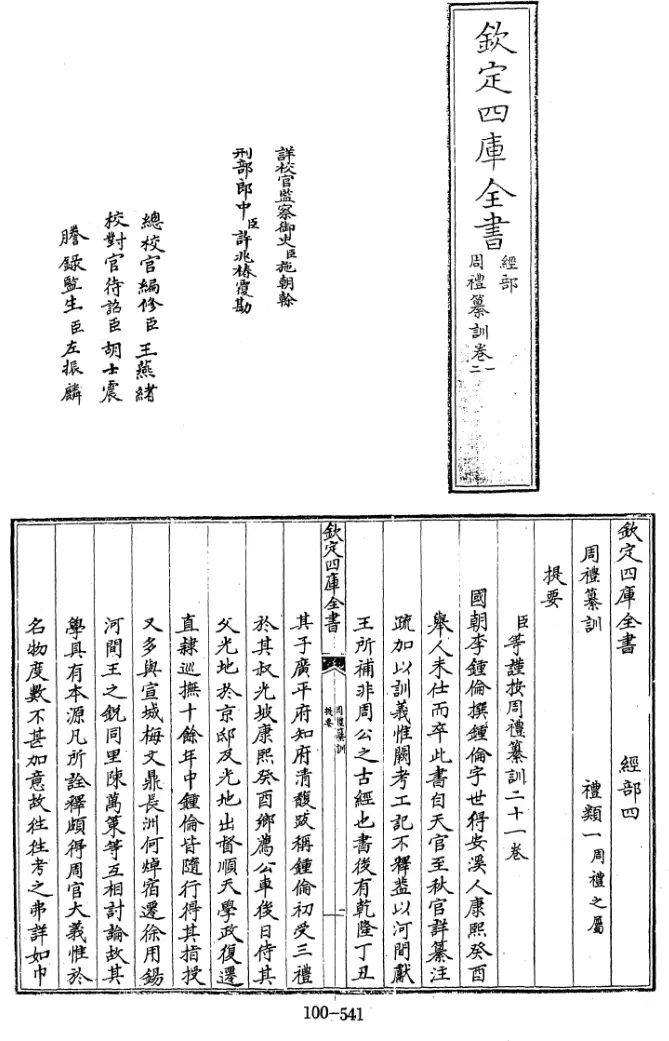 欽定四庫全書
經部
周禮纂訓卷一二
詳校官監察御史臣施朝榦
刑部郎中臣許兆椿覆勘
總校官編修臣王燕緒
校對官待詔臣胡士震
謄錄監生臣左振麟
欽定四庫全書 經部四
周禮纂訓 禮類一周禮之屬
提要
臣等謹按周禮纂訓二十一卷
國朝李鍾倫撰鍾倫字世得安溪人康熙癸酉
舉人未仕而卒此書自天官至秋官詳纂注
疏加以訓義惟闕考工記不釋蓋以河間獻
王所補非周公之古經也書後有乾隆丁丑
欽定四庫全書
周禮纂訓
提要
一
其子廣平府知府清馥跋稱鍾倫初受三禮
於其叔光坡康熙癸酉鄉薦公車後日侍其
父光地於京邸及光地出督順天學政復遷
直隸巡撫十餘年中鍾倫皆隨行得其指授
又多與宣城梅文鼎長洲何焯宿遷徐用錫
河間王之銳同里陳萬策等互相討論故其
學具有本源凡所詮釋頗得周官大義惟於
名物度數不甚加意故往往考之弗詳如巾
100-541